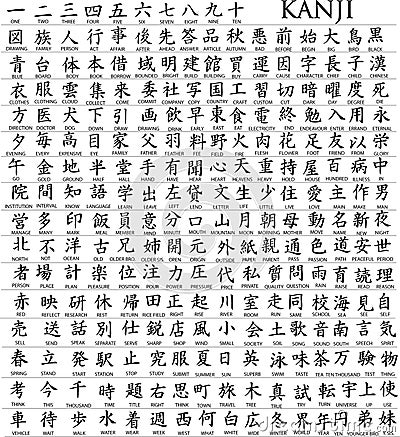 一 二 三 四 五 六 七 八 九 十 KANJI
ONE TWO THREE FOUR FIVE SIX SEVEN EIGHT NINE TEN
図 族 人 行 事 後 先 答 品 秋 悪 前 始 大 鳥 黒
DRAWING FAMILY PERSON ACT AFFAIR AFTER AHEAD ANSWER ARTICLE AUTUMN BAD BEFORE BEGIN BIG BIRD BLACK
青 台 体 本 借 域 明 建 館 買 運 因 字 長 子 漢
BLUE BODY BOOK BORROW BOUNDED BRIGHT BUILD BUILDING BUY CARRY CAUSE CHARACTER CHIEF CHILD CHINESE
衣 服 雲 集 来 委 社 写 国 工 習 切 暗 曜 度 死
CLOTHES CLOTHING CLOUD COLLECT COME COMMIT COMPANY COPY COUNTRY CRAFT CUSTOM CUT DARK DAY DEGREE DIE
方 医 犬 下 引 画 飲 早 東 食 電 終 勉 入 用 永
DIRECTION DOCTOR DOG DOWN DRAW DRAWING DRINK EARLY EAST EAT ELECTRICITY END ENDEAVOUR ENTER ERRAND ETERNAL
夕 毎 高 目 家 父 羽 料 野 火 肉 花 足 友 以 栄
EVENING EVERY EXPENSIVE EYE FAMILY FATHER FEATHER FEE FIELD FIRE FLESH FLOWER FOOT FRIEND FROM GLORY
午 金 地 半 堂 手 有 聞 心 天 重 持 屋 百 病 中
GO GOLD GROUND HALF HALL HAND HAVE HEAR HEART HEAVENS HEAVY HOLD HOUSE HUNDRED ILLNESS IN
院 間 知 語 学 出 左 貸 文 生 少 住 愛 主 作 男
INSTITUTION INTERVAL KNOW LANGUAGE LEARN LEAVE LEFT LEND LETTER LIFE LITTLE LIVE LOVE MAIN MAKE MAN
営 多 印 飯 員 意 分 口 山 月 朝 母 動 名 新 夜
MANAGE MANY MARK MEAL MEMBER MIND MINUTE MOUTH MOUNTAIN MONTH MORNING MOTHER MOVE NAME NEW NIGHT
北 不 洋 古 兄 姉 開 元 外 紙 親 通 色 道 安 世
NORTH NOT OCEAN OLD OLDER BRO. OLDER SIS. OPEN ORIGIN OUTSIDE PAPER PARENT PASS PASSION PATH PEACEFUL PERIOD
者 場 計 楽 位 注 力 圧 代 私 質 問 雨 育 読 理
PERSON PLACE PLAN PLEASURE POSITION POUR POWER PRESSURE PRICE PRIVATE QUALITY QUESTION RAIN RAISE READ REASON
赤 映 研 休 帰 田 正 起 川 室 走 同 校 海 見 自
RED REFLECT RESEARCH REST RETURN RICE FIELD RIGHT RISE RIVER ROOM RUN SAME SCHOOL SEA SEE SELF
売 送 話 別 仕 鋭 店 風 小 会 土 歌 音 南 言 気
SELL SEND SPEAK SEPARATE SERVE SHARP SHOP WIND SMALL SOCIETY SOIL SONG SOUND SOUTH SPEECH SPIRIT
春 立 発 駅 止 究 服 夏 日 英 泳 味 茶 万 験 物
SPRING STAND START STATION STOP STUDY SUBMIT SUMMER SUN SUPERB SWIM TASTE TEA TEN THOUSAND TEST THING
考 今 千 時 題 右 思 町 旅 木 真 試 転 宇 上 使
THINK THIS THOUSAND TIME TITLE RIGHT THINK TOWN TRAVEL TREE TRUE TRY TURN UNIVERSE UP USE
車 待 歩 水 着 週 西 何 白 広 冬 年 円 弟 妹
VEHICLE WAIT WALK WATER WEAR WEEK WEST WHAT WHITE WIDE WINTER YEAR YEN